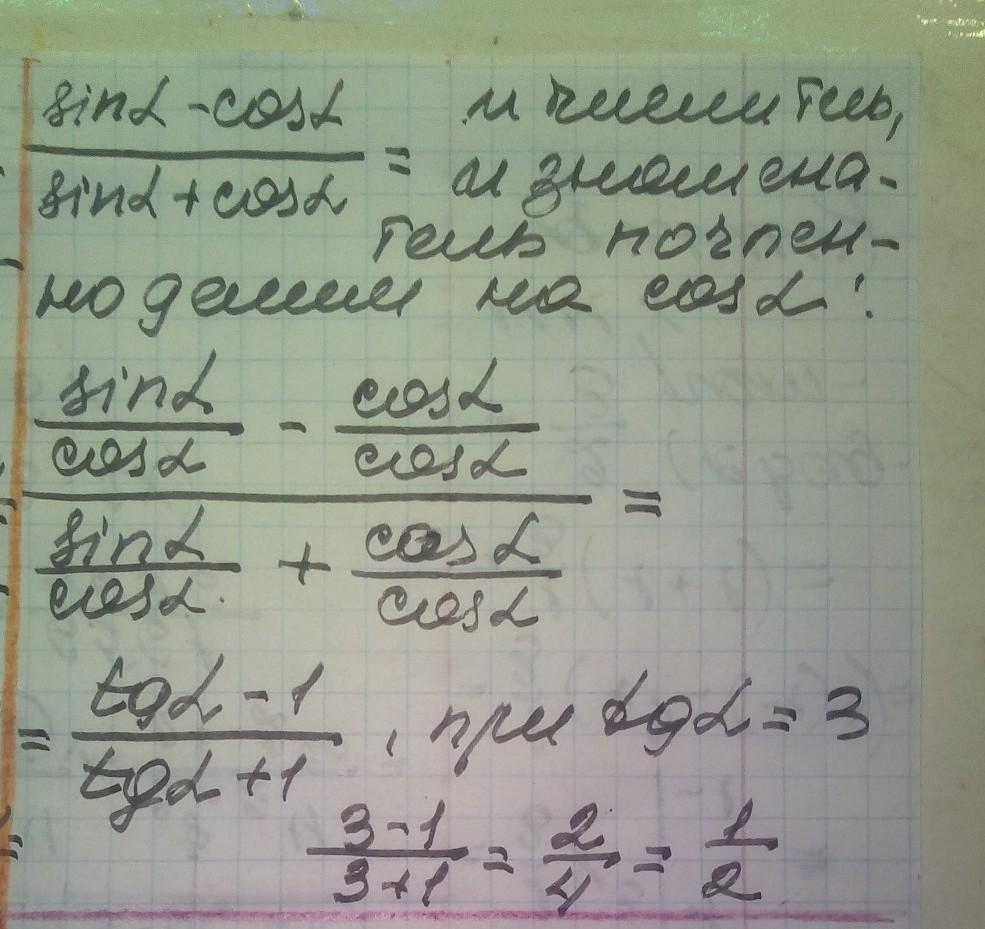 sinα - cosα и числитель,
sinα + cosα = и знамена-
тель почлен-
но делим на cosα:
sinα/cosα - cosα/cosα
=
sinα/cosα + cosα/cosα
= tgα - 1 / tgα + 1, при tgα = 3
3-1/3+1 = 2/4 = 1/2